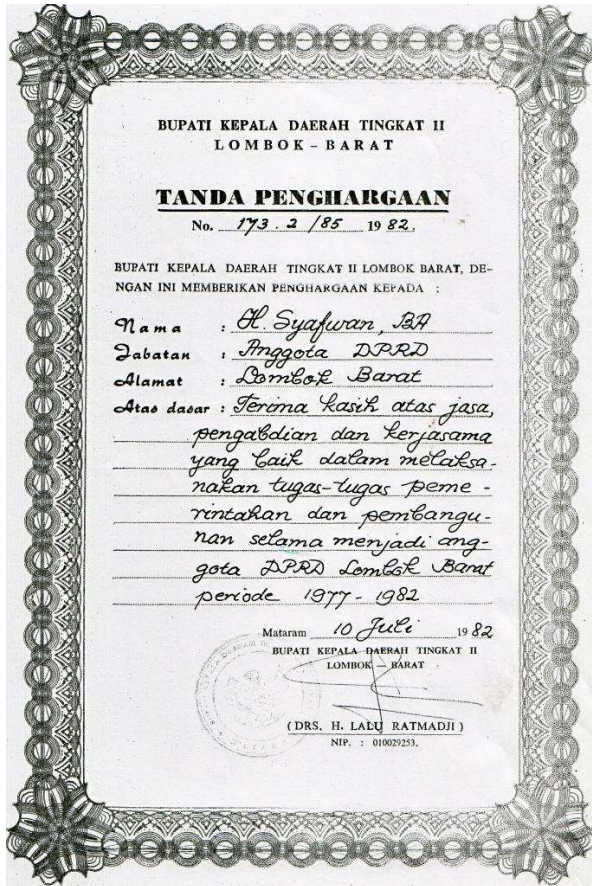 BUPATI KEPALA DAERAH TINGKAT II
LOMBOK – BARAT
TANDA PENGHARGAAN
No. 173.2/85 1982.
BUPATI KEPALA DAERAH TINGKAT II LOMBOK BARAT, DE-
NGAN INI MEMBERIKAN PENGHARGAAN KEPADA :
Nama : H. Syafwan, BA
Jabatan : Anggota DPRD
Alamat : Lombok Barat
Atas dasar : Terima kasih atas jasa,
pengabdian dan kerjasama
yang baik dalam melaksa-
nakan tugas-tugas peme-
rintahan dan pembangu-
nan selama menjadi ang-
gota DPRD Lombok Barat
periode 1977-1982
Mataram 10 Juli 1982
BUPATI KEPALA DAERAH TINGKAT II
LOMBOK — BARAT
(DRS. H. LALU RATMADJI)
NIP. : 010029253.